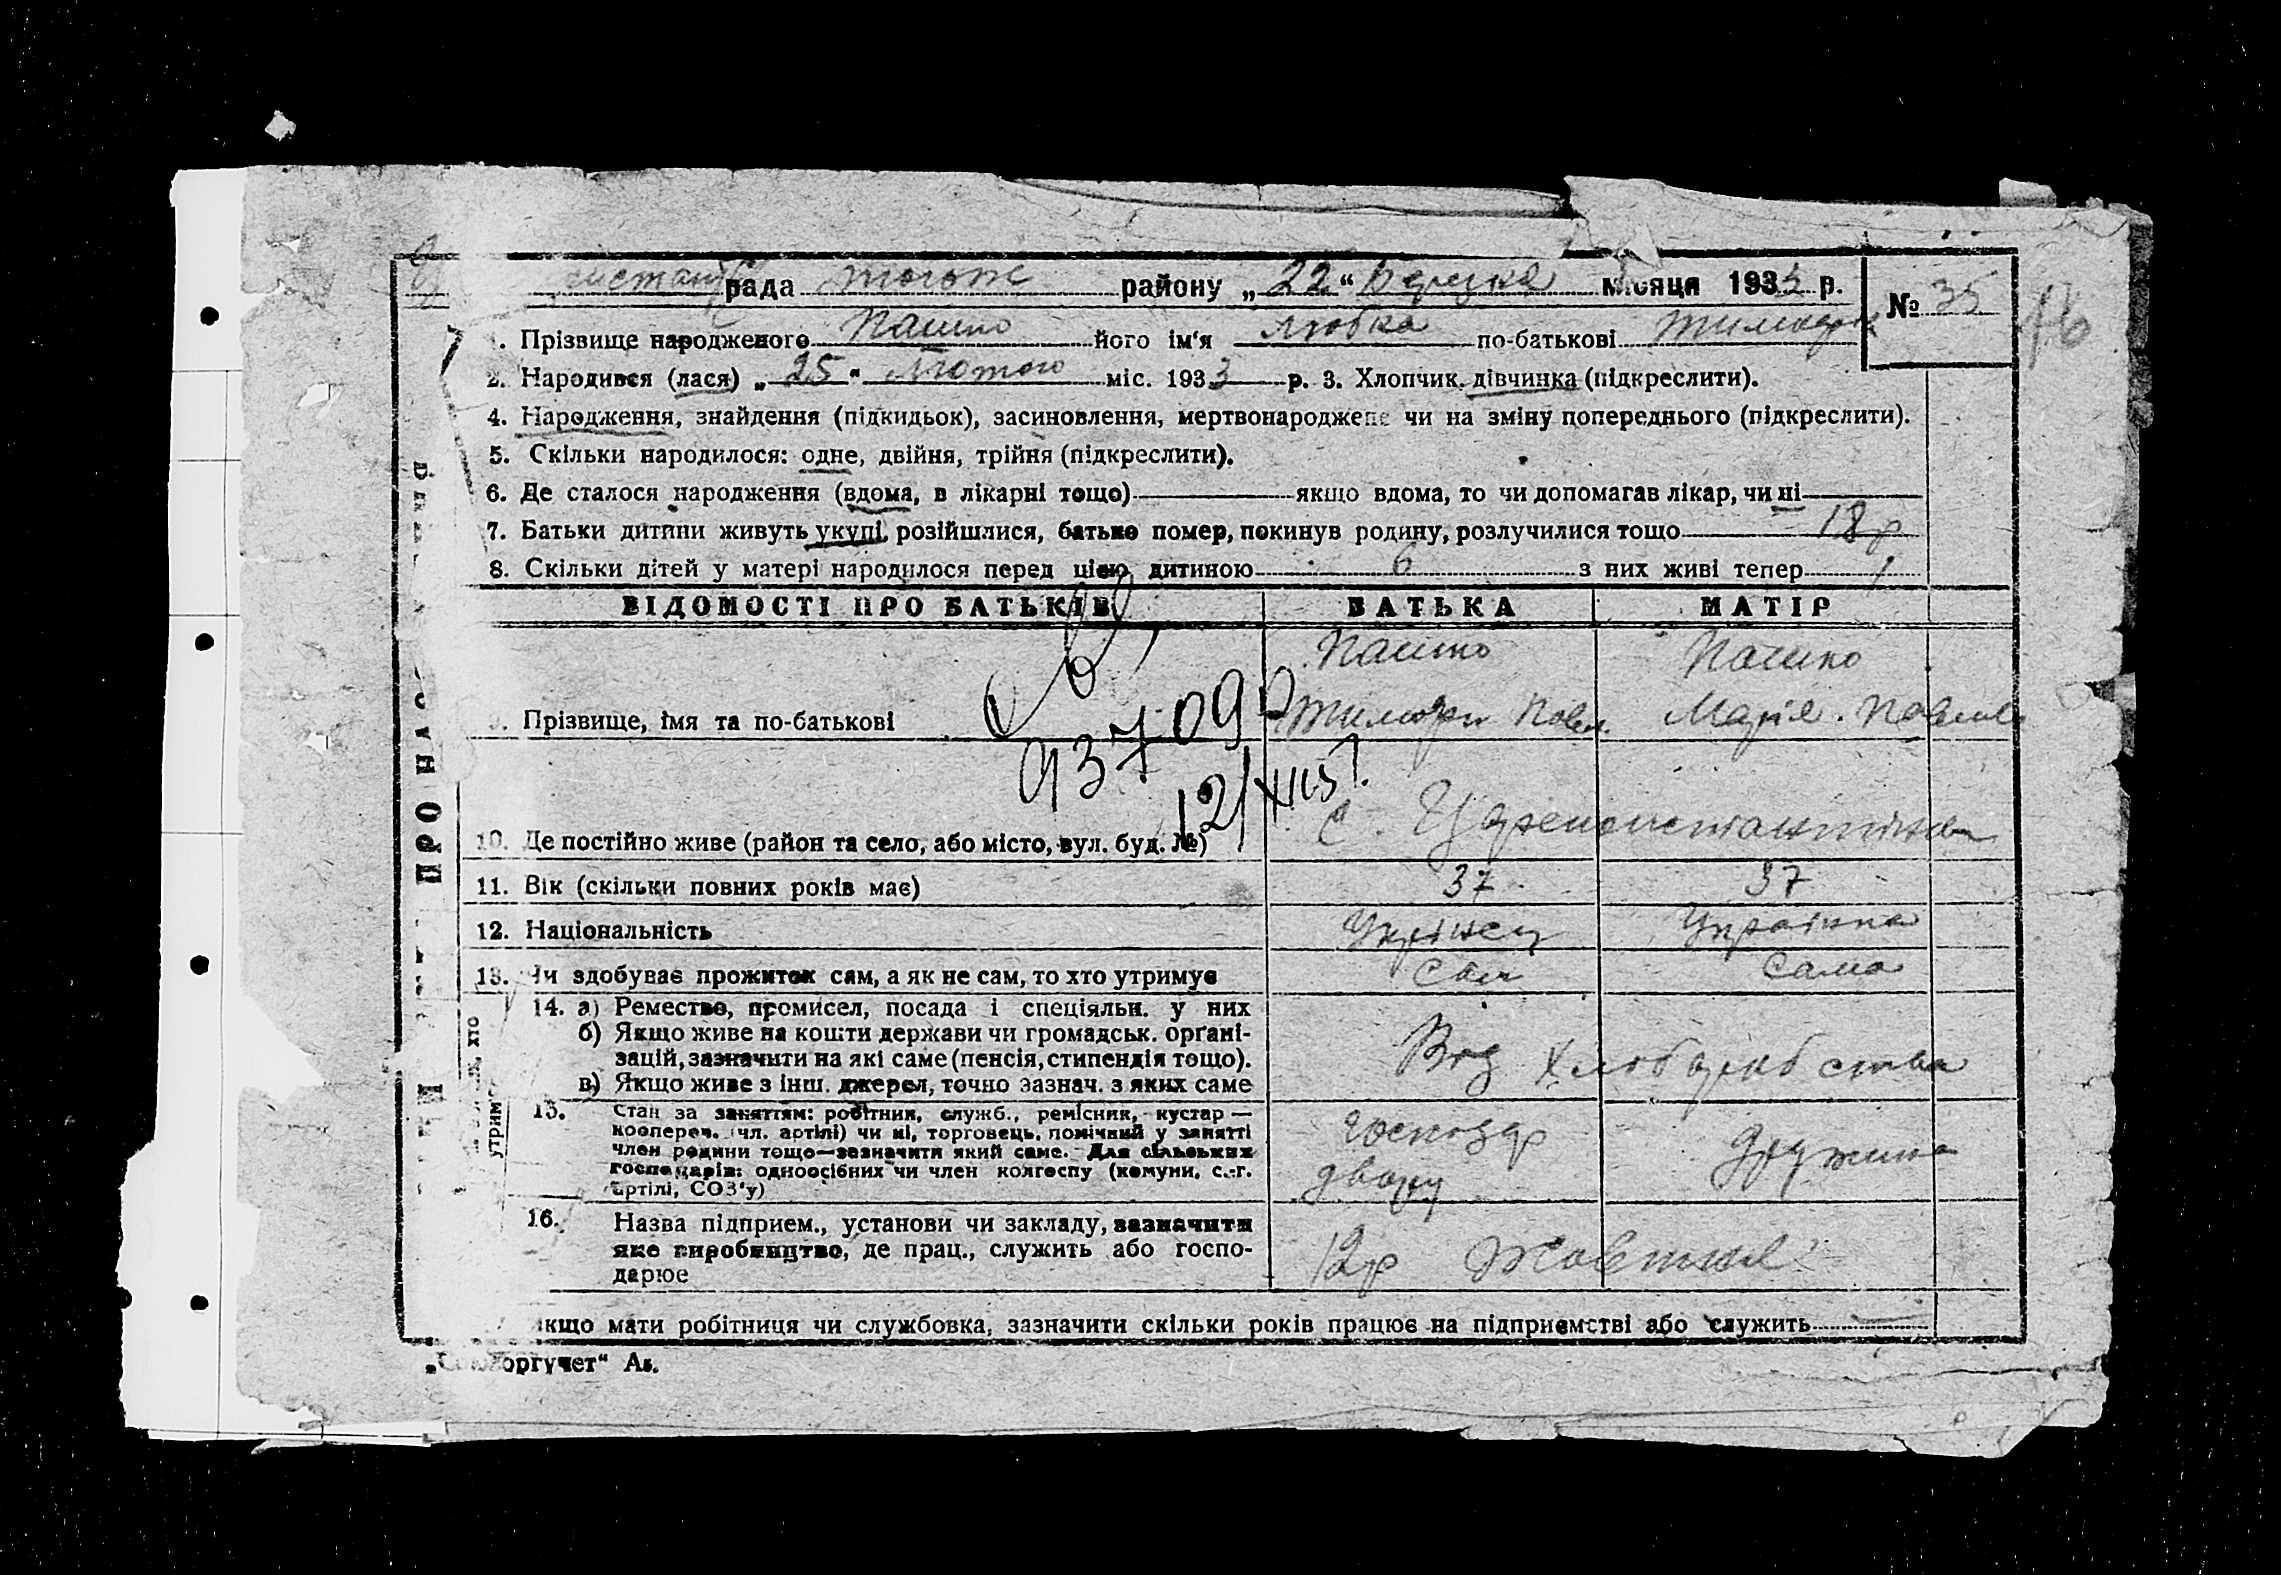 рада тогож району „22“ березня місяця 1933 р. № 35
1. Прізвище народженого Пашко його ім'я Любка по-батькові Тимофі
2. Народився (лася) „25“ Лютого міс. 1933 р. 3. Хлопчик. дівчинка (підкреслити).
4. Народження, знайдення (підкидьок), засиновлення, мертвонароджене чи на зміну попереднього (підкреслити).
5. Скільки народилося: одне, двійня, трійня (підкреслити).
6. Де сталося народження (вдома, в лікарні тощо) якщо вдома, то чи допомагав лікар, чи ні
7. Батьки дитини живуть укупі, розійшлися, батько помер, покинув родину, розлучилися тощо 18 р
8. Скільки дітей у матері народилося перед цією дитиною 6 з них живі тепер 1
ВІДОМОСТІ ПРО БАТЬКІВ БАТЬКА МАТІР
Пашко Пашко
9. Прізвище, імя та по-батькові Тимофій Павл. Марія Павлів
93709
12/XII 51.
10. Де постійно живе (район та село, або місто, вул. буд. №) с. Цареконстантинов
11. Вік (скільки повних років має) 37 37
12. Національність Украінец Украінка
13. Чи здобуває прожиток сам, а як не сам, то хто утримує Сам Сама
14. а) Ремество, промисел, посада і спеціяльн. у них
б) Якщо живе на кошти держави чи громадськ. органі-
зацій, зазначити на які саме (пенсія, стипендія тощо).
в) Якщо живе з інш. джерел, точно зазнач. з яких саме
Від Хлоборобства
15. Стан за заняттям: робітник, служб., ремісник, кустар —
коопереч. (чл. артілі) чи ні, торговець, помічний у занятті
член родини тощо—зазначити який саме. Для сільських
господарів: одноосібних чи член колгоспу (комуни, с.-г.
артілі, СОЗ'у)
господар
двору
Дружина
16. Назва підприєм., установи чи закладу, зазначити
яке виробництво, де прац., служить або госпо-
дарює
12 р
якщо мати робітниця чи службовка, зазначити скільки років працює на підприємстві або служить
оргучет“